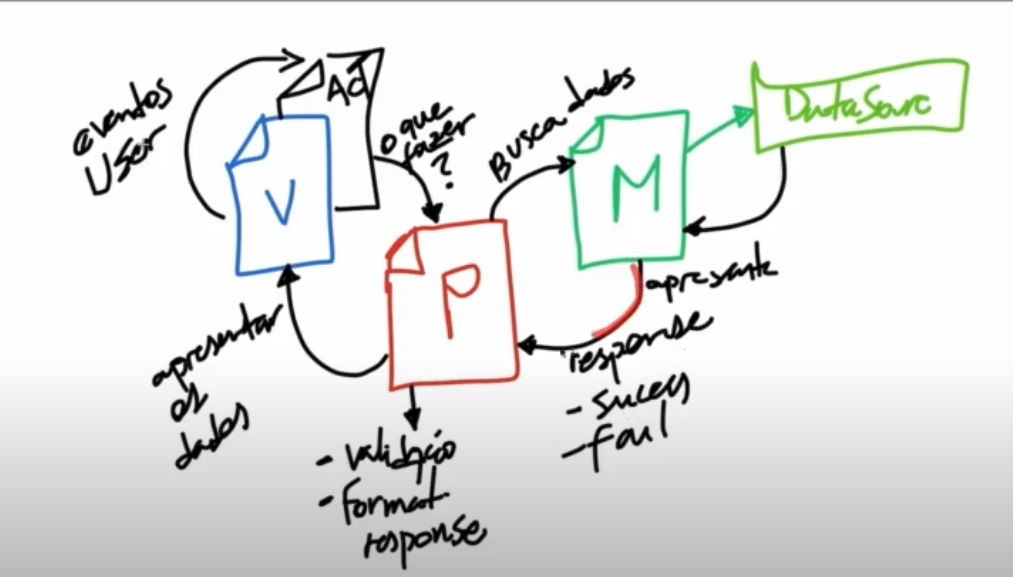 eventos
User
Act
V
o que
fazer
?
Busca dados
M
DataSourc
P
apresenta
response
- sucess
- fail
apresentar
os
dados
- validação
- Format
response